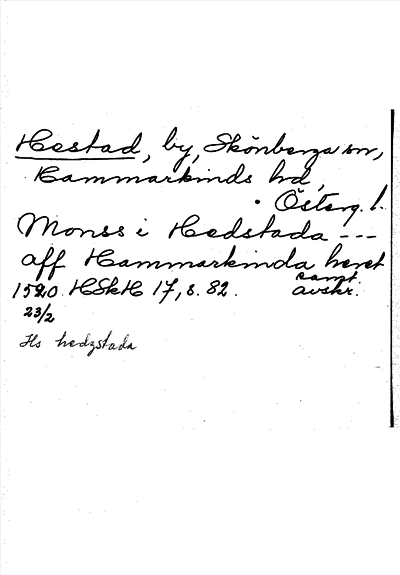 Hestad, by, Skönberga sn,
Hammarkinds hd,
Österg. l.
Monss i Hedstada ---
aff Hammarkinda heret
1520 HSkH 17, s. 82. samt. avskr.
23/2
Hs hedzstada